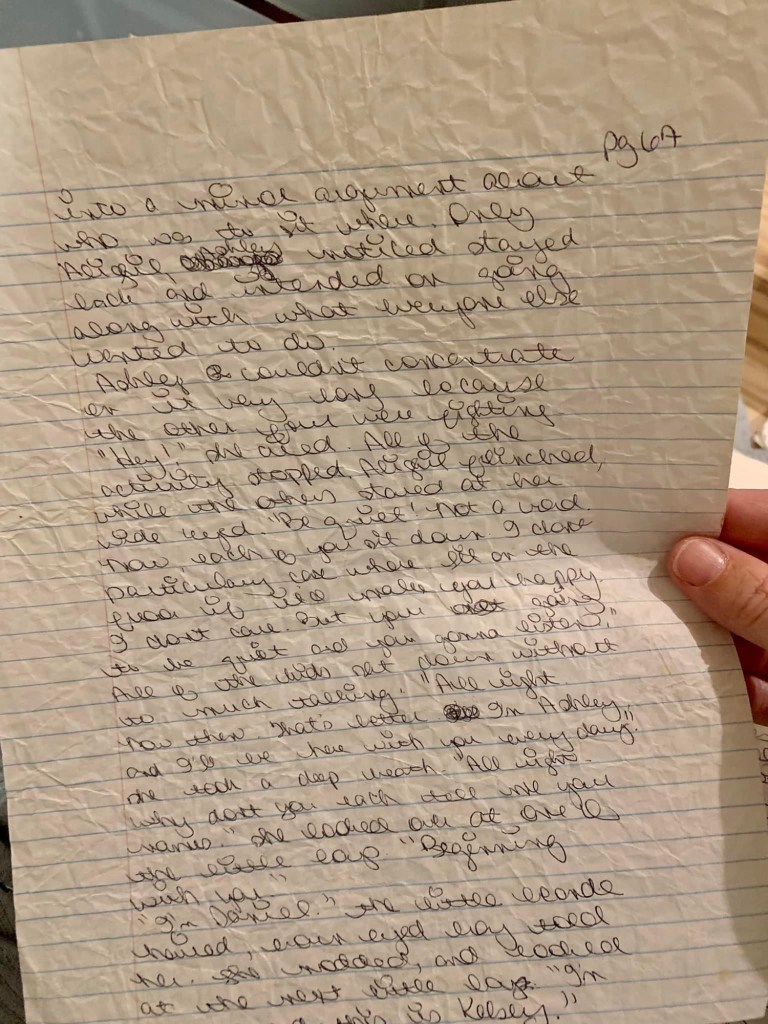 pg 67
into a minor argument about
who was to sit where. Only
Abigil noticed stayed
back and intended on going
along with what everyone else
wanted to do.
Ashley couldn't concentrate
on it very long because
the other four were fighting
"Hey!", she cried. All of the
activity stopped. Abigil flinched,
while the others stared at her
wide eyed. "Be quiet! Not a word
now, each of you sit down I don't
particulary care where sit on the
floor if it'll make you happy.
I don't care. But your going
to be quiet and you gonna listen."
All of the kids sat down without
to much talking. "All right
now then. That's better I'm Ashley,
and I'll be here with you every day."
she took a deep breath. "All right.
why don't you each tell me your
names." She looked over at one of
the little boys "Beginning
with you."
"I'm Daniel." the little blonde
haired, brown eyed boy told
her. She nodded, and looked
at the next little boy. "I'm
this is Kelsey."